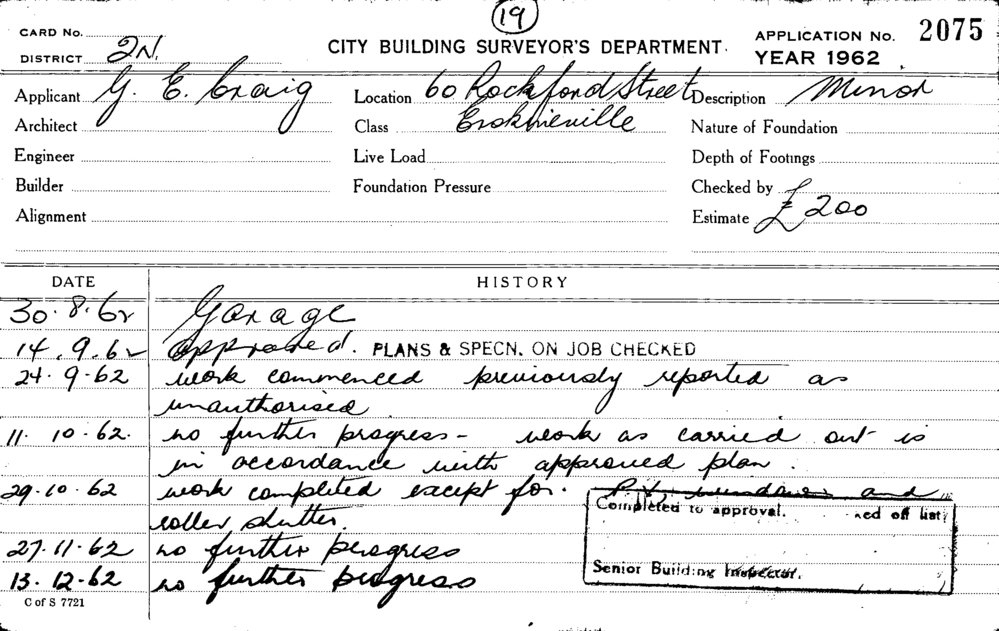 19
CARD No. CITY BUILDING SURVEYOR'S DEPARTMENT. APPLICATION No. 2075
DISTRICT 2N. YEAR 1962
Applicant G. E. Craig Location 60 Rockford Street Description Minor
Architect Class Erskineville Nature of Foundation
Engineer Live Load Depth of Footings
Builder Foundation Pressure Checked by
Alignment Estimate £200
DATE HISTORY
30.8.62 Garage
14.9.62 approved. PLANS & SPECN. ON JOB CHECKED
24.9.62 work commenced previously reported as
unauthorised
11.10.62. no further progress - work as carried out is
in accordance with approved plan.
29.10.62 work completed except for. windows and
roller shutter.
Completed to approval. ked off list
27.11.62 no further progress
Senior Building Inspector.
13.12.62 no further progress
C of S 7721